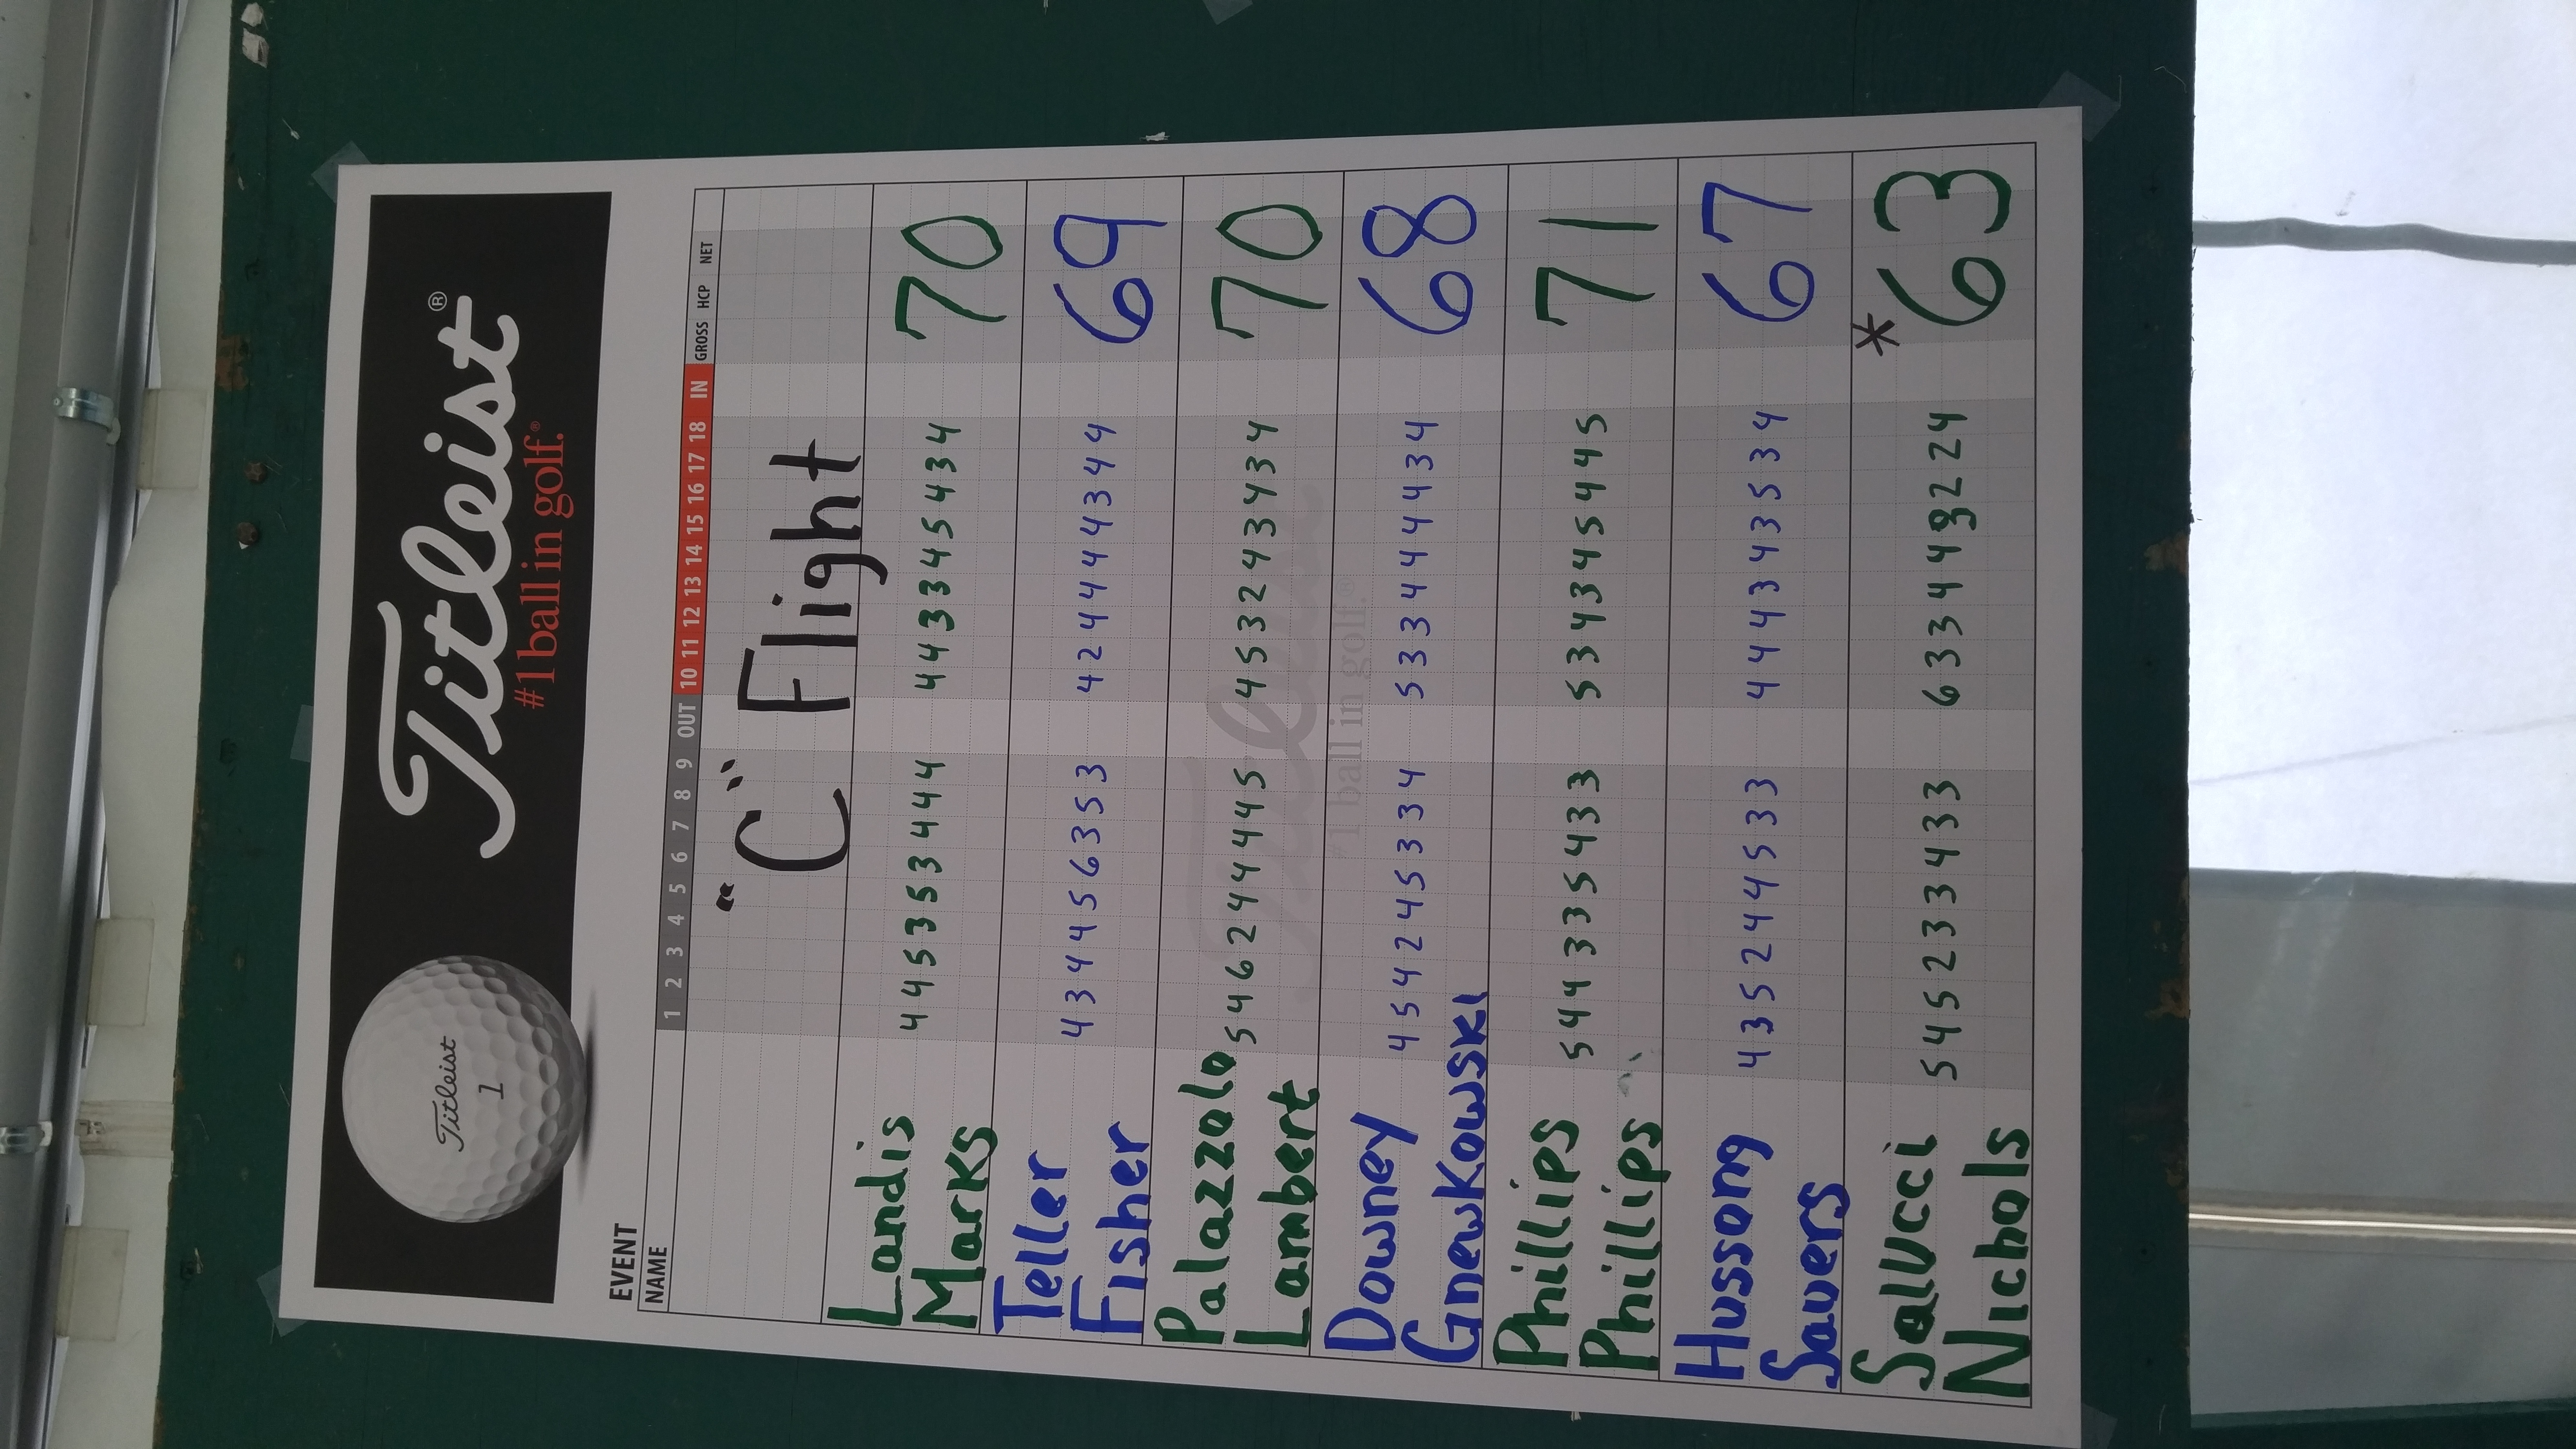 Titleist
1
Titleist®
#1 ball in golf.®
EVENT
NAME 1 2 3 4 5 6 7 8 9 OUT 10 11 12 13 14 15 16 17 18 IN GROSS HCP NET
"C" Flight
Landis 4 4 5 3 5 3 4 4 4 4 4 3 3 4 5 4 3 4 70
Marks
Teller 4 3 4 4 5 6 3 5 3 4 2 4 4 4 4 3 4 4 69
Fisher
Palazzolo 5 4 6 2 4 4 4 4 5 4 5 3 2 4 3 4 3 4 70
Lambert
Titleist
#1 ball in golf.®
Downey 4 5 4 2 4 5 3 3 4 5 3 3 4 4 4 4 3 4 68
Gnewkowski
Phillips 5 4 4 3 3 5 4 3 3 5 3 4 3 4 5 4 4 5 71
Phillips
Hussong 4 3 5 2 4 4 5 3 3 4 4 4 3 4 3 5 3 4 67
Savers
Sallucci 5 4 5 2 3 3 4 3 3 6 3 3 4 4 3 2 2 4 *63
Nichols